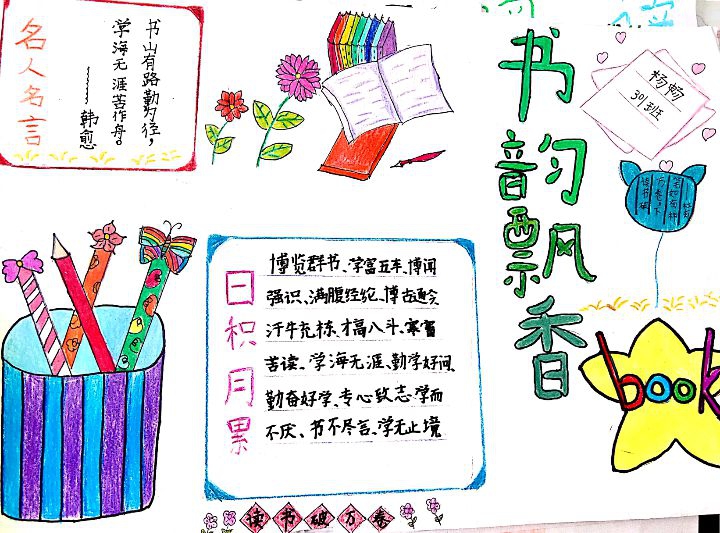 名人名言
书山有路勤为径，
学海无涯苦作舟。
——韩愈
书韵飘香
杨畅
301班
book
日积月累
博览群书、学富五车、博闻
强识、满腹经纶、博古通今
汗牛充栋、才高八斗、寒窗
苦读、学海无涯、勤学好问、
勤奋好学、专心致志、学而
不厌、书不尽言、学无止境
读书破万卷